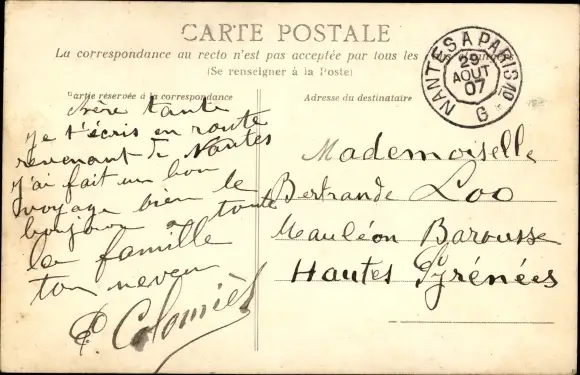 CARTE POSTALE
La correspondance au recto n'est pas acceptée par tous les
(Se renseigner à la Poste)
Partie réservée à la correspondance
Adresse du destinataire
NANTES A PARIS 1o
29
AOUT
07
G
tante
je t'écris en route
revenant de Nantes
j'ai fait un bon
voyage bien le
bonjour toute
la famille
ton neveu
P Colomiès
Mademoiselle
Bertrande Loo
Mauléon Barousse
Hautes Pyrénées